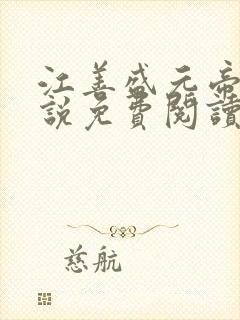 江善盛元帝
說免費閱讀
慈航